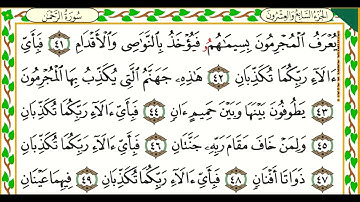 الجزء السابع والعشرون سورة الرحمن
يُعْرَفُ الْمُجْرِمُونَ بِسِيمَاهُمْ فَيُؤْخَذُ بِالنَّوَاصِي وَالْأَقْدَامِ ٤١ فَبِأَيِّ
ءَالَاءِ رَبِّكُمَا تُكَذِّبَانِ ٤٢ هَٰذِهِ جَهَنَّمُ الَّتِي يُكَذِّبُ بِهَا الْمُجْرِمُونَ
٤٣ يَطُوفُونَ بَيْنَهَا وَبَيْنَ حَمِيمٍ ءَانٍ ٤٤ فَبِأَيِّ ءَالَاءِ رَبِّكُمَا تُكَذِّبَانِ
٤٥ وَلِمَنْ خَافَ مَقَامَ رَبِّهِ جَنَّتَانِ ٤٦ فَبِأَيِّ ءَالَاءِ رَبِّكُمَا تُكَذِّبَانِ
٤٧ ذَوَاتَا أَفْنَانٍ ٤٨ فَبِأَيِّ ءَالَاءِ رَبِّكُمَا تُكَذِّبَانِ ٤٩ فِيهِمَا عَيْنَانِ